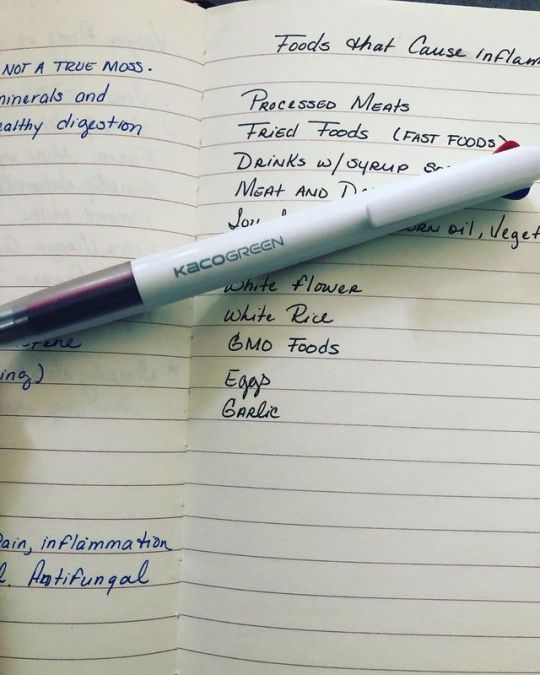 NOT A TRUE MOSS.
minerals and
healthy digestion
ing)
Pain, inflammation
Antifungal
Foods that Cause inflam
PROCESSED MEATS
FRIED FOODS (FAST FOODS)
DRINKS W/ SYRUP
MEAT AND
OIL, Veget
KACOGREEN
White flower
White Rice
GMO Foods
Eggs
GARLIC